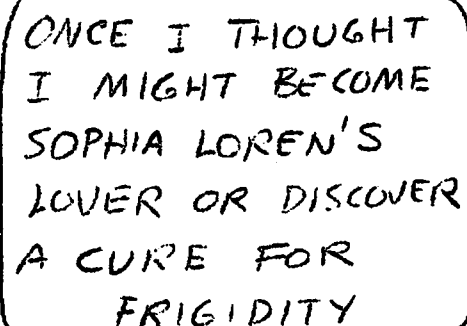 ONCE I THOUGHT
I MIGHT BECOME
SOPHIA LOREN'S
LOVER OR DISCOVER
A CURE FOR
FRIGIDITY